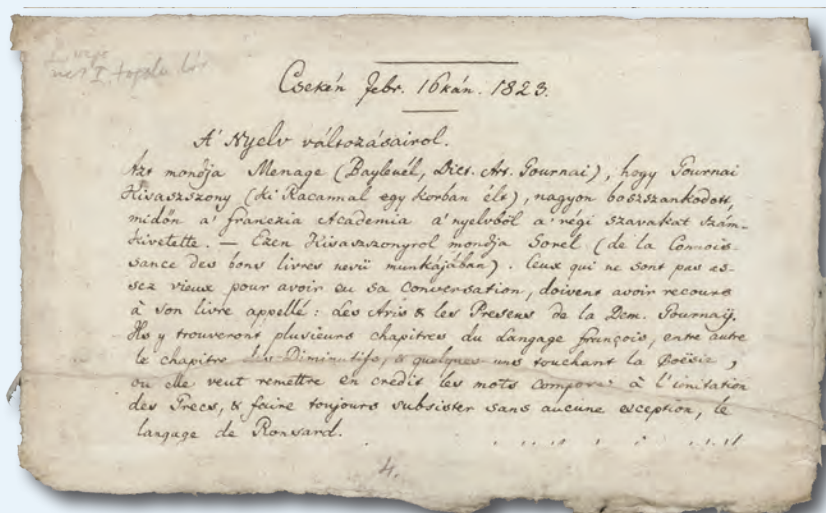 I. topolu
Csekén Febr. 16kán. 1823.
A' Nyelv változásairol.
Azt mondja Menage (Baylenél, Dict. Art. Gournai), hogy Gournai
Kisaszszony (ki Racannal egy korban élt), nagyon boszszankodott,
midőn a' franczia Academia a' nyelvből a' régi szavakat szám-
kivetette. — Ezen Kisaszszonyrol mondja Sorel (de la Connois-
sance des bons livres nevü munkájában). Ceux qui ne sont pas as-
sez vieux pour avoir eu sa Conversation, doivent avoir recours
à son livre appellé: Les Avis & les Presens de la Dem. Gournaÿ.
Ils y trouveront plusieurs chapitres du Langage françois, entre autre
le chapitre des Diminutifs, & quelques-uns touchant la Poësie,
ou elle veut remettre en credit les mots composez à l'imitation
des Grecs, & faire toujours subsister sans aucune exception, le
langage de Ronsard.
4.